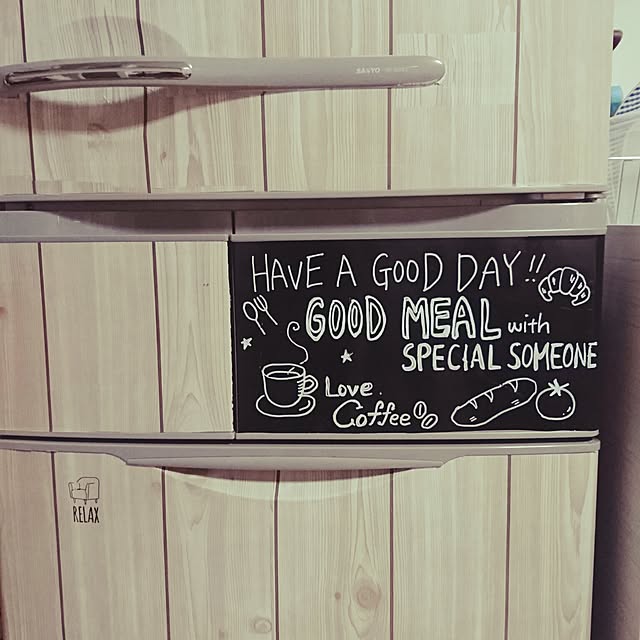 SANYO
HAVE A GOOD DAY!!
GOOD MEAL with
SPECIAL SOMEONE
Love.
Coffee
RELAX